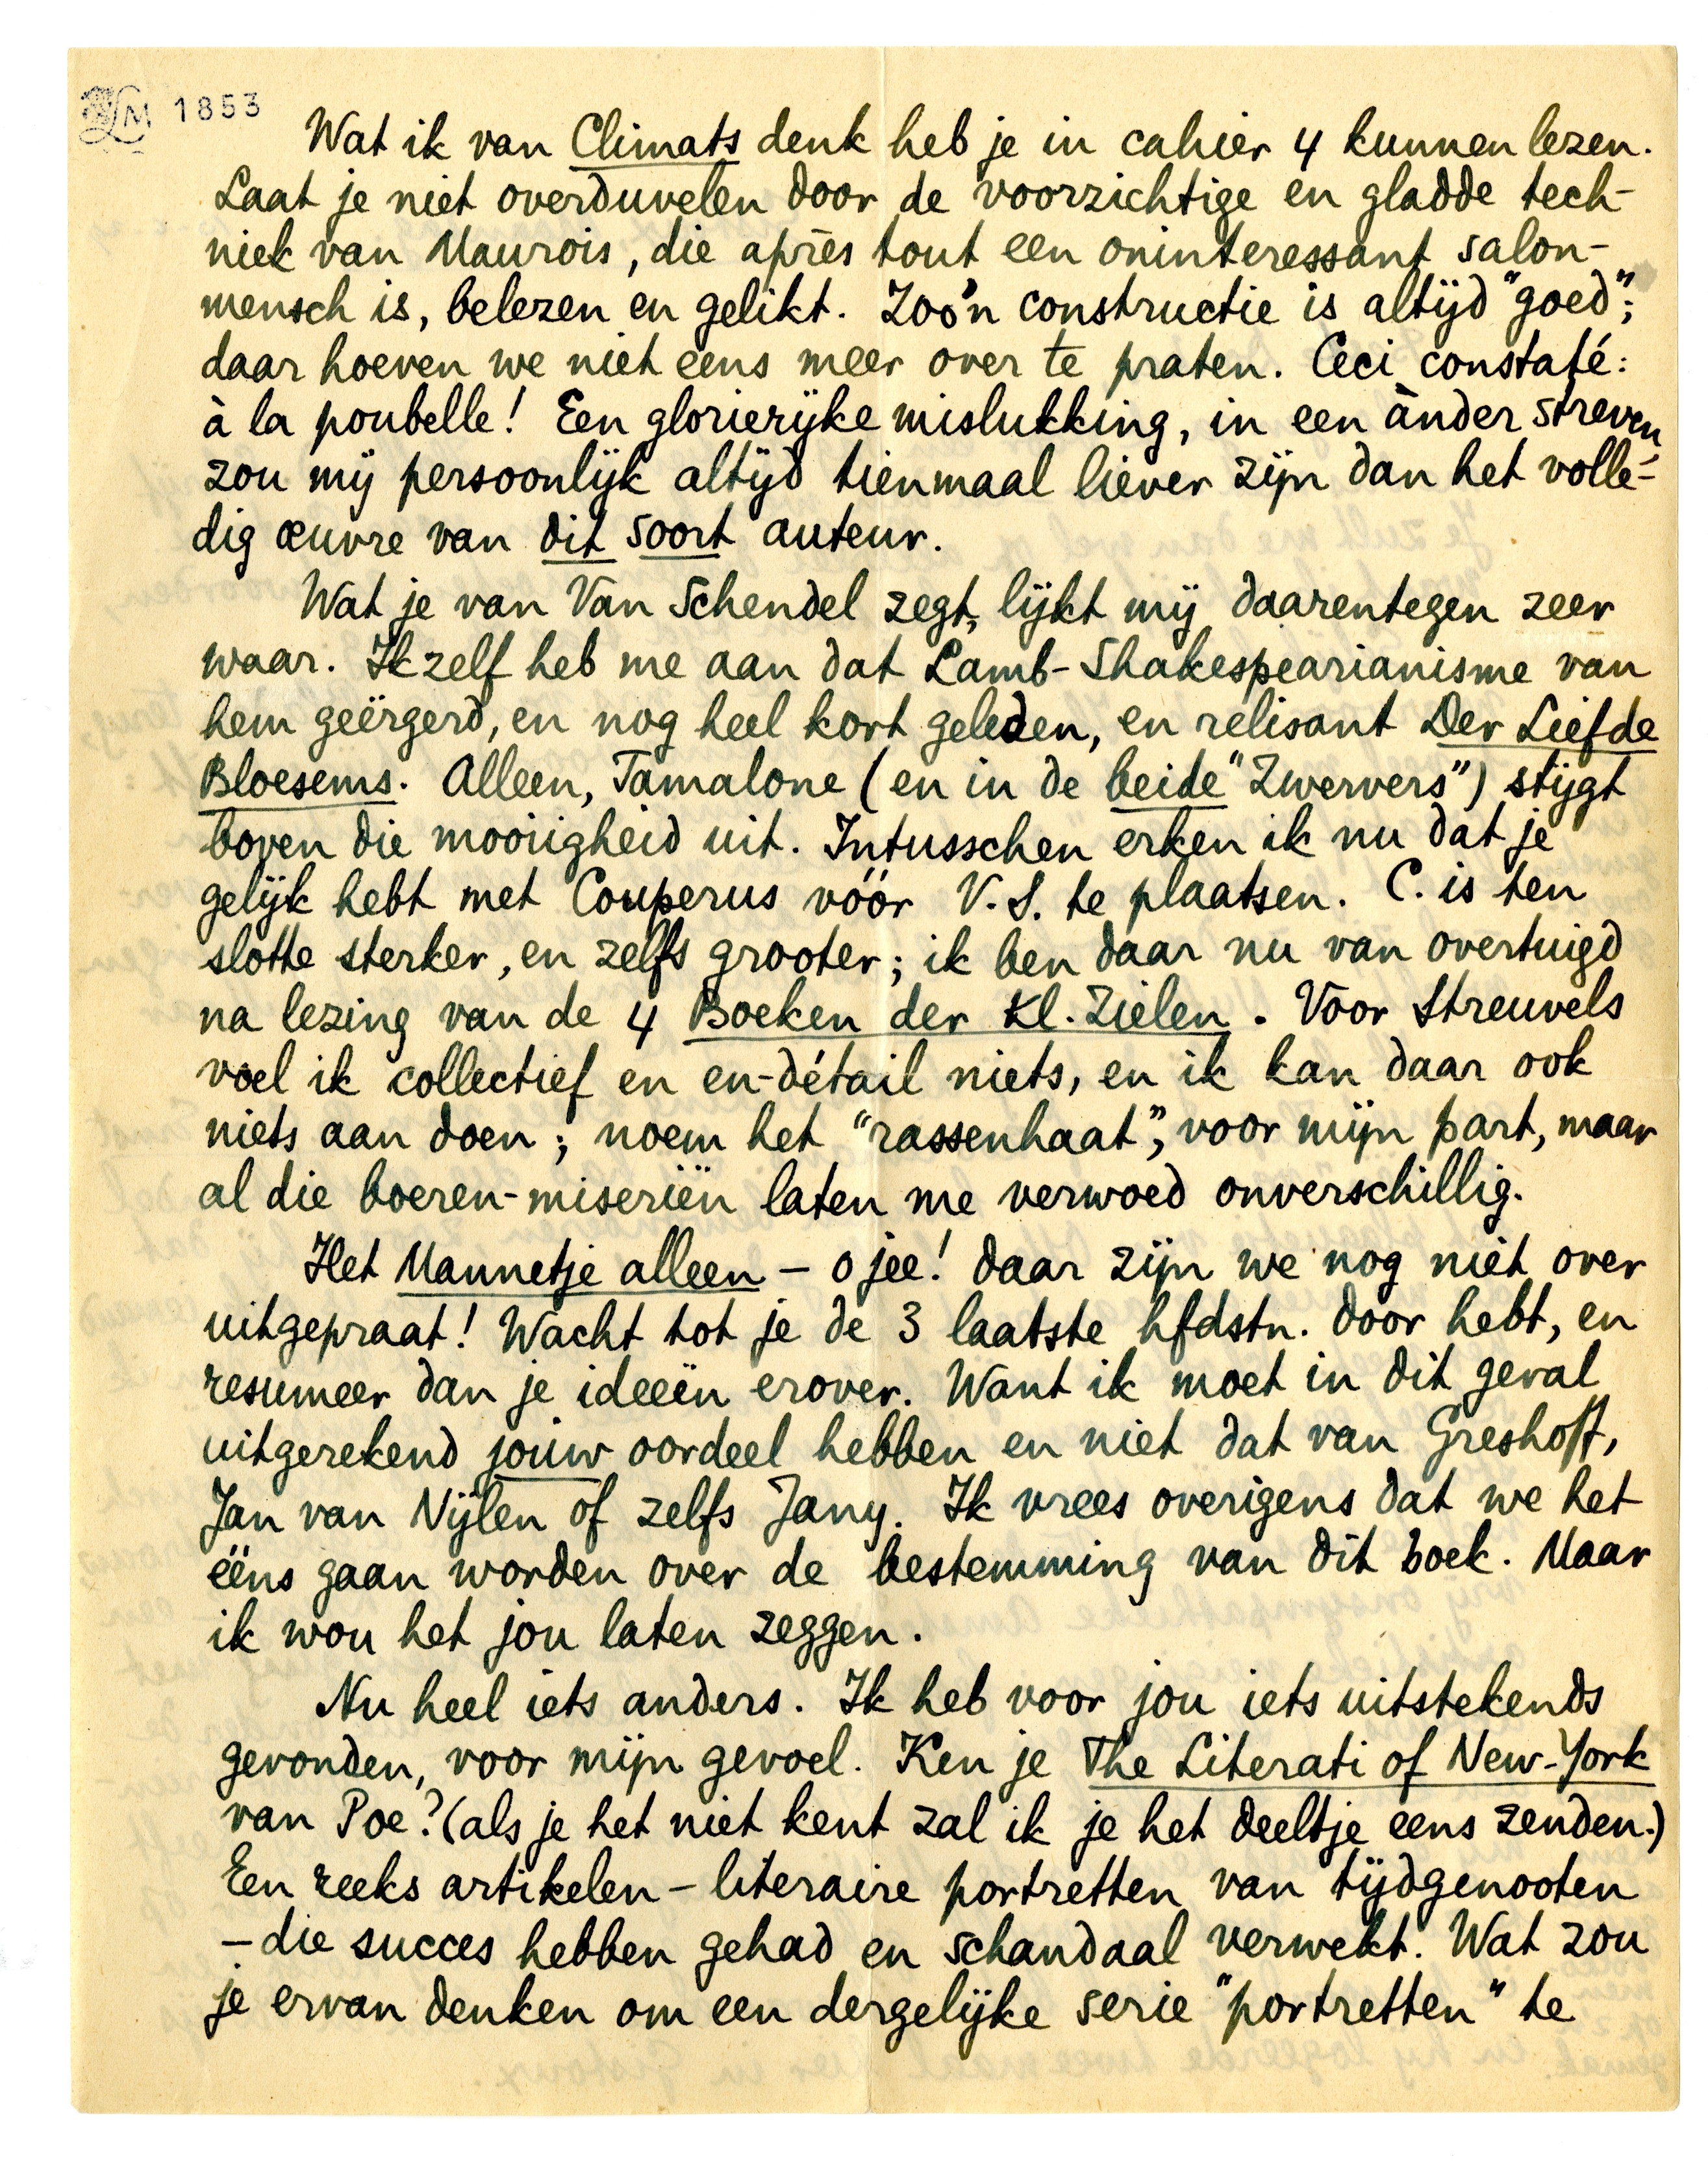 LM 1853
Wat ik van Climats denk heb je in cahier 4 kunnen lezen.
Laat je niet overduvelen door de voorzichtige en gladde tech-
niek van Maurois, die après tout een oninteressant salon-
mensch is, belezen en gelikt. Zoo'n constructie is altijd "goed";
daar hoeven we niet eens meer over te praten. Ceci constaté:
à la poubelle! Een glorierijke mislukking, in een ànder streven,
zou mij persoonlijk altijd tienmaal liever zijn dan het volle-
dig œuvre van dit soort auteur.
Wat je van Van Schendel zegt, lijkt mij daarentegen zeer
waar. Ik zelf heb me aan dat Lamb-Shakespearianisme van
hem geërgerd, en nog heel kort geleden, en relisant Der Liefde
Bloesems. Alleen, Tamalone (en in de beide "Zwervers") stijgt
boven die mooiigheid uit. Intusschen erken ik nu dat je
gelijk hebt met Couperus vóór V.S. te plaatsen. C. is ten
slotte sterker, en zelfs grooter; ik ben daar nu van overtuigd
na lezing van de 4 Boeken der Kl. Zielen. Voor Streuvels
voel ik collectief en en-détail niets, en ik kan daar ook
niets aan doen; noem het "rassenhaat", voor mijn part, maar
al die boeren-miseriën laten me verwoed onverschillig.
Het Mannetje alleen – o jee! daar zijn we nog niet over
uitgepraat! Wacht tot je de 3 laatste hfdstn. door hebt, en
resumeer dan je ideeën erover. Want ik moet in dit geval
uitgerekend jouw oordeel hebben en niet dat van Greshoff,
Jan van Nijlen of zelfs Jany. Ik vrees overigens dat we het
ééns gaan worden over de bestemming van dit boek. Maar
ik wou het jou laten zeggen.
Nu heel iets anders. Ik heb voor jou iets uitstekends
gevonden, voor mijn gevoel. Ken je The Literati of New-York
van Poe? (als je het niet kent zal ik je het deeltje eens zenden.)
Een reeks artikelen – literaire portretten van tijdgenooten
– die succes hebben gehad en schandaal verwekt. Wat zou
je ervan denken om een dergelijke serie "portretten" te